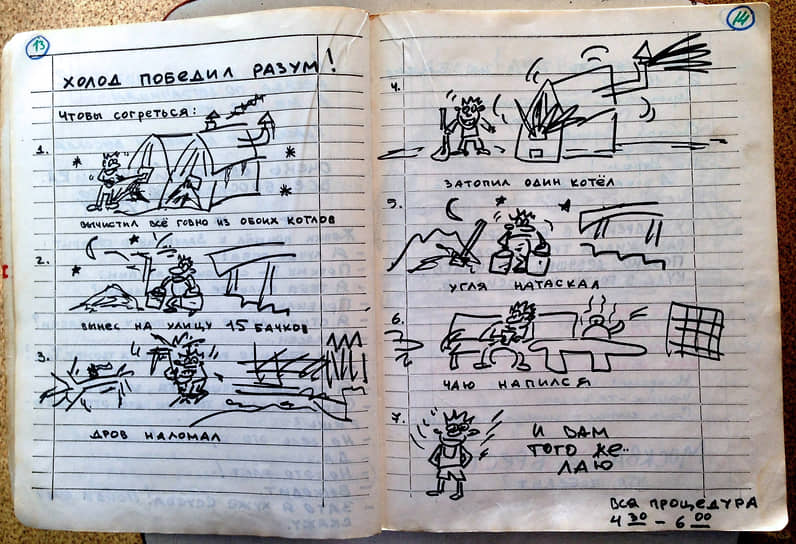 13
ХОЛОД ПОБЕДИЛ РАЗУМ!
Чтобы согреться:
1.
ВЫЧИСТИЛ ВСЁ ГОВНО ИЗ ОБОИХ КОТЛОВ
2.
ВЫНЕС НА УЛИЦУ 15 БАЧКОВ
3.
ДРОВ НАЛОМАЛ
14
4.
ЗАТОПИЛ ОДИН КОТЁЛ
5.
УГЛЯ НАТАСКАЛ
6.
ЧАЮ НАПИЛСЯ
7.
И ВАМ
ТОГО ЖЕ..
ЛАЮ
ВСЯ ПРОЦЕДУРА
4 30 – 6 00